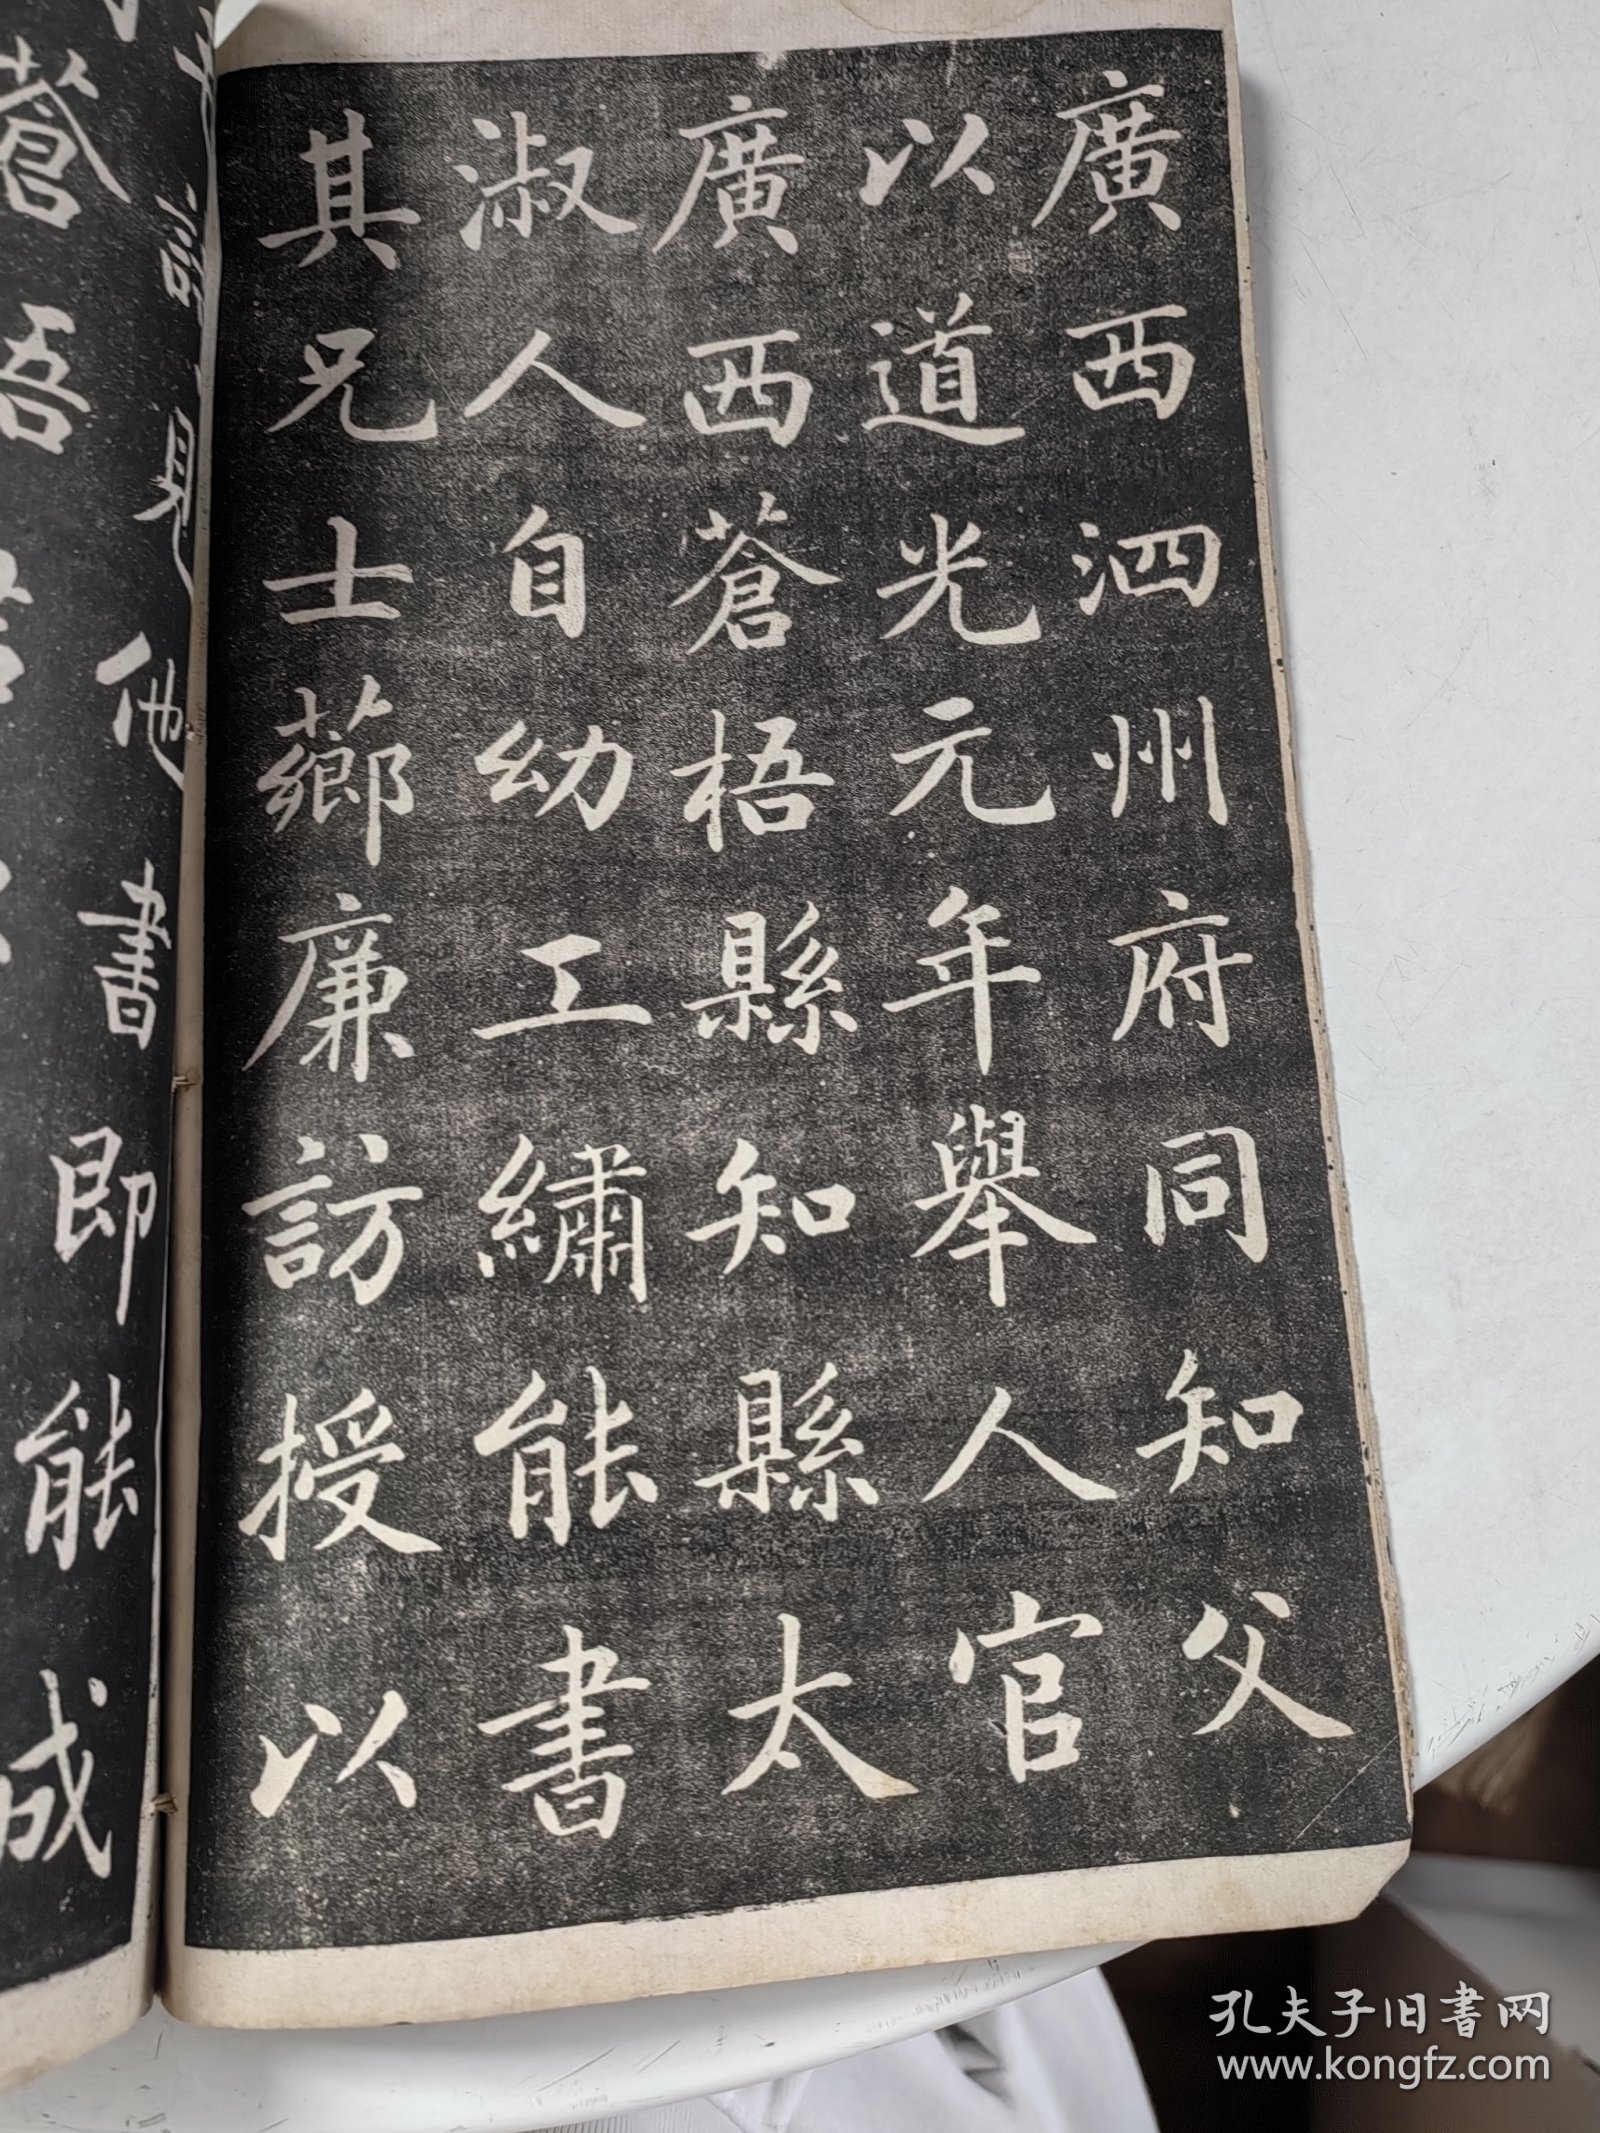 廣西泗州府同知父
以道光元年舉人官
廣西蒼梧縣知縣太
淑人自幼工繡能書
其兄士薌廉訪授以
見他書即能成
蒼梧
孔夫子旧書网
www.kongfz.com